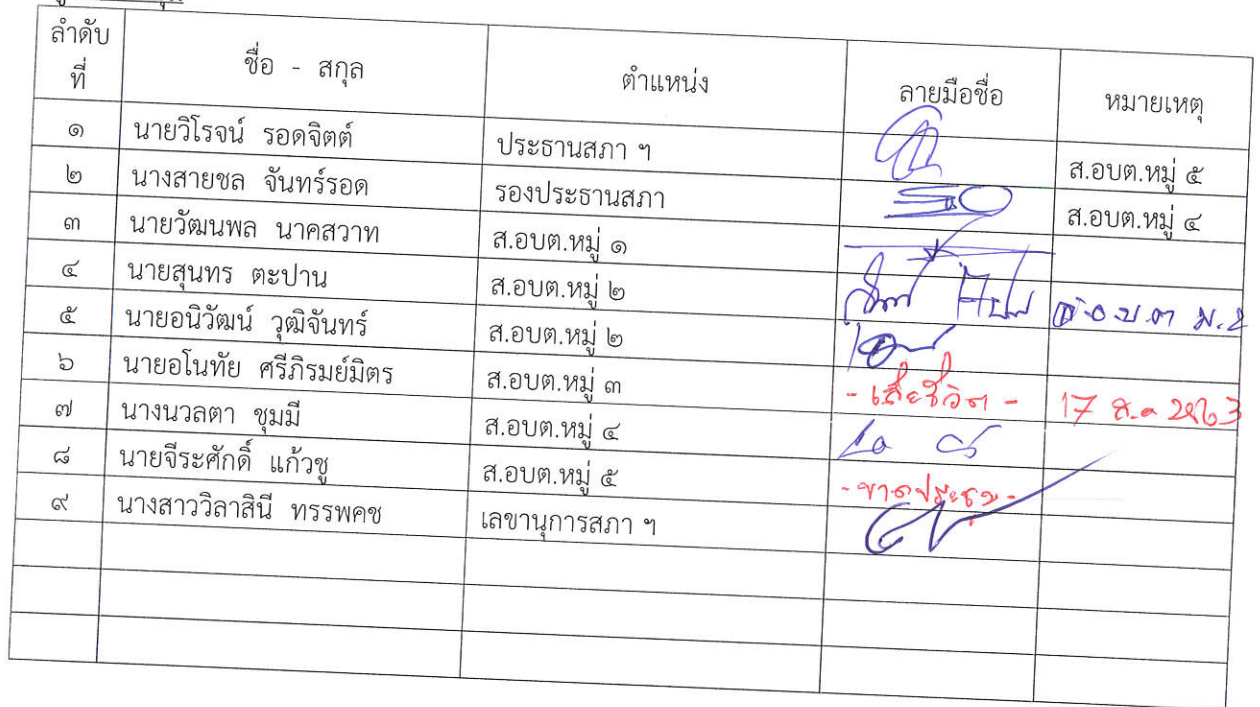 ลำดับที่ ชื่อ - สกุล ตำแหน่ง ลายมือชื่อ หมายเหตุ
๑ นายวิโรจน์ รอดจิตต์ ประธานสภา ฯ ส.อบต.หมู่ ๕
๒ นางสายชล จันทร์รอด รองประธานสภา ส.อบต.หมู่ ๔
๓ นายวัฒนพล นาคสวาท ส.อบต.หมู่ ๑
๔ นายสุนทร ตะปาน ส.อบต.หมู่ ๒ ส.อ.บ.ต ม.2
๕ นายอนิวัฒน์ วุฒิจันทร์ ส.อบต.หมู่ ๒
๖ นายอโนทัย ศรีภิรมย์มิตร ส.อบต.หมู่ ๓ - เสียชีวิต - 17 ส.ค 2563
๗ นางนวลตา ชุมมี ส.อบต.หมู่ ๔
๘ นายจีระศักดิ์ แก้วชู ส.อบต.หมู่ ๕ - ขาดประชุม -
๙ นางสาววิลาสินี ทรรพคช เลขานุการสภา ฯ